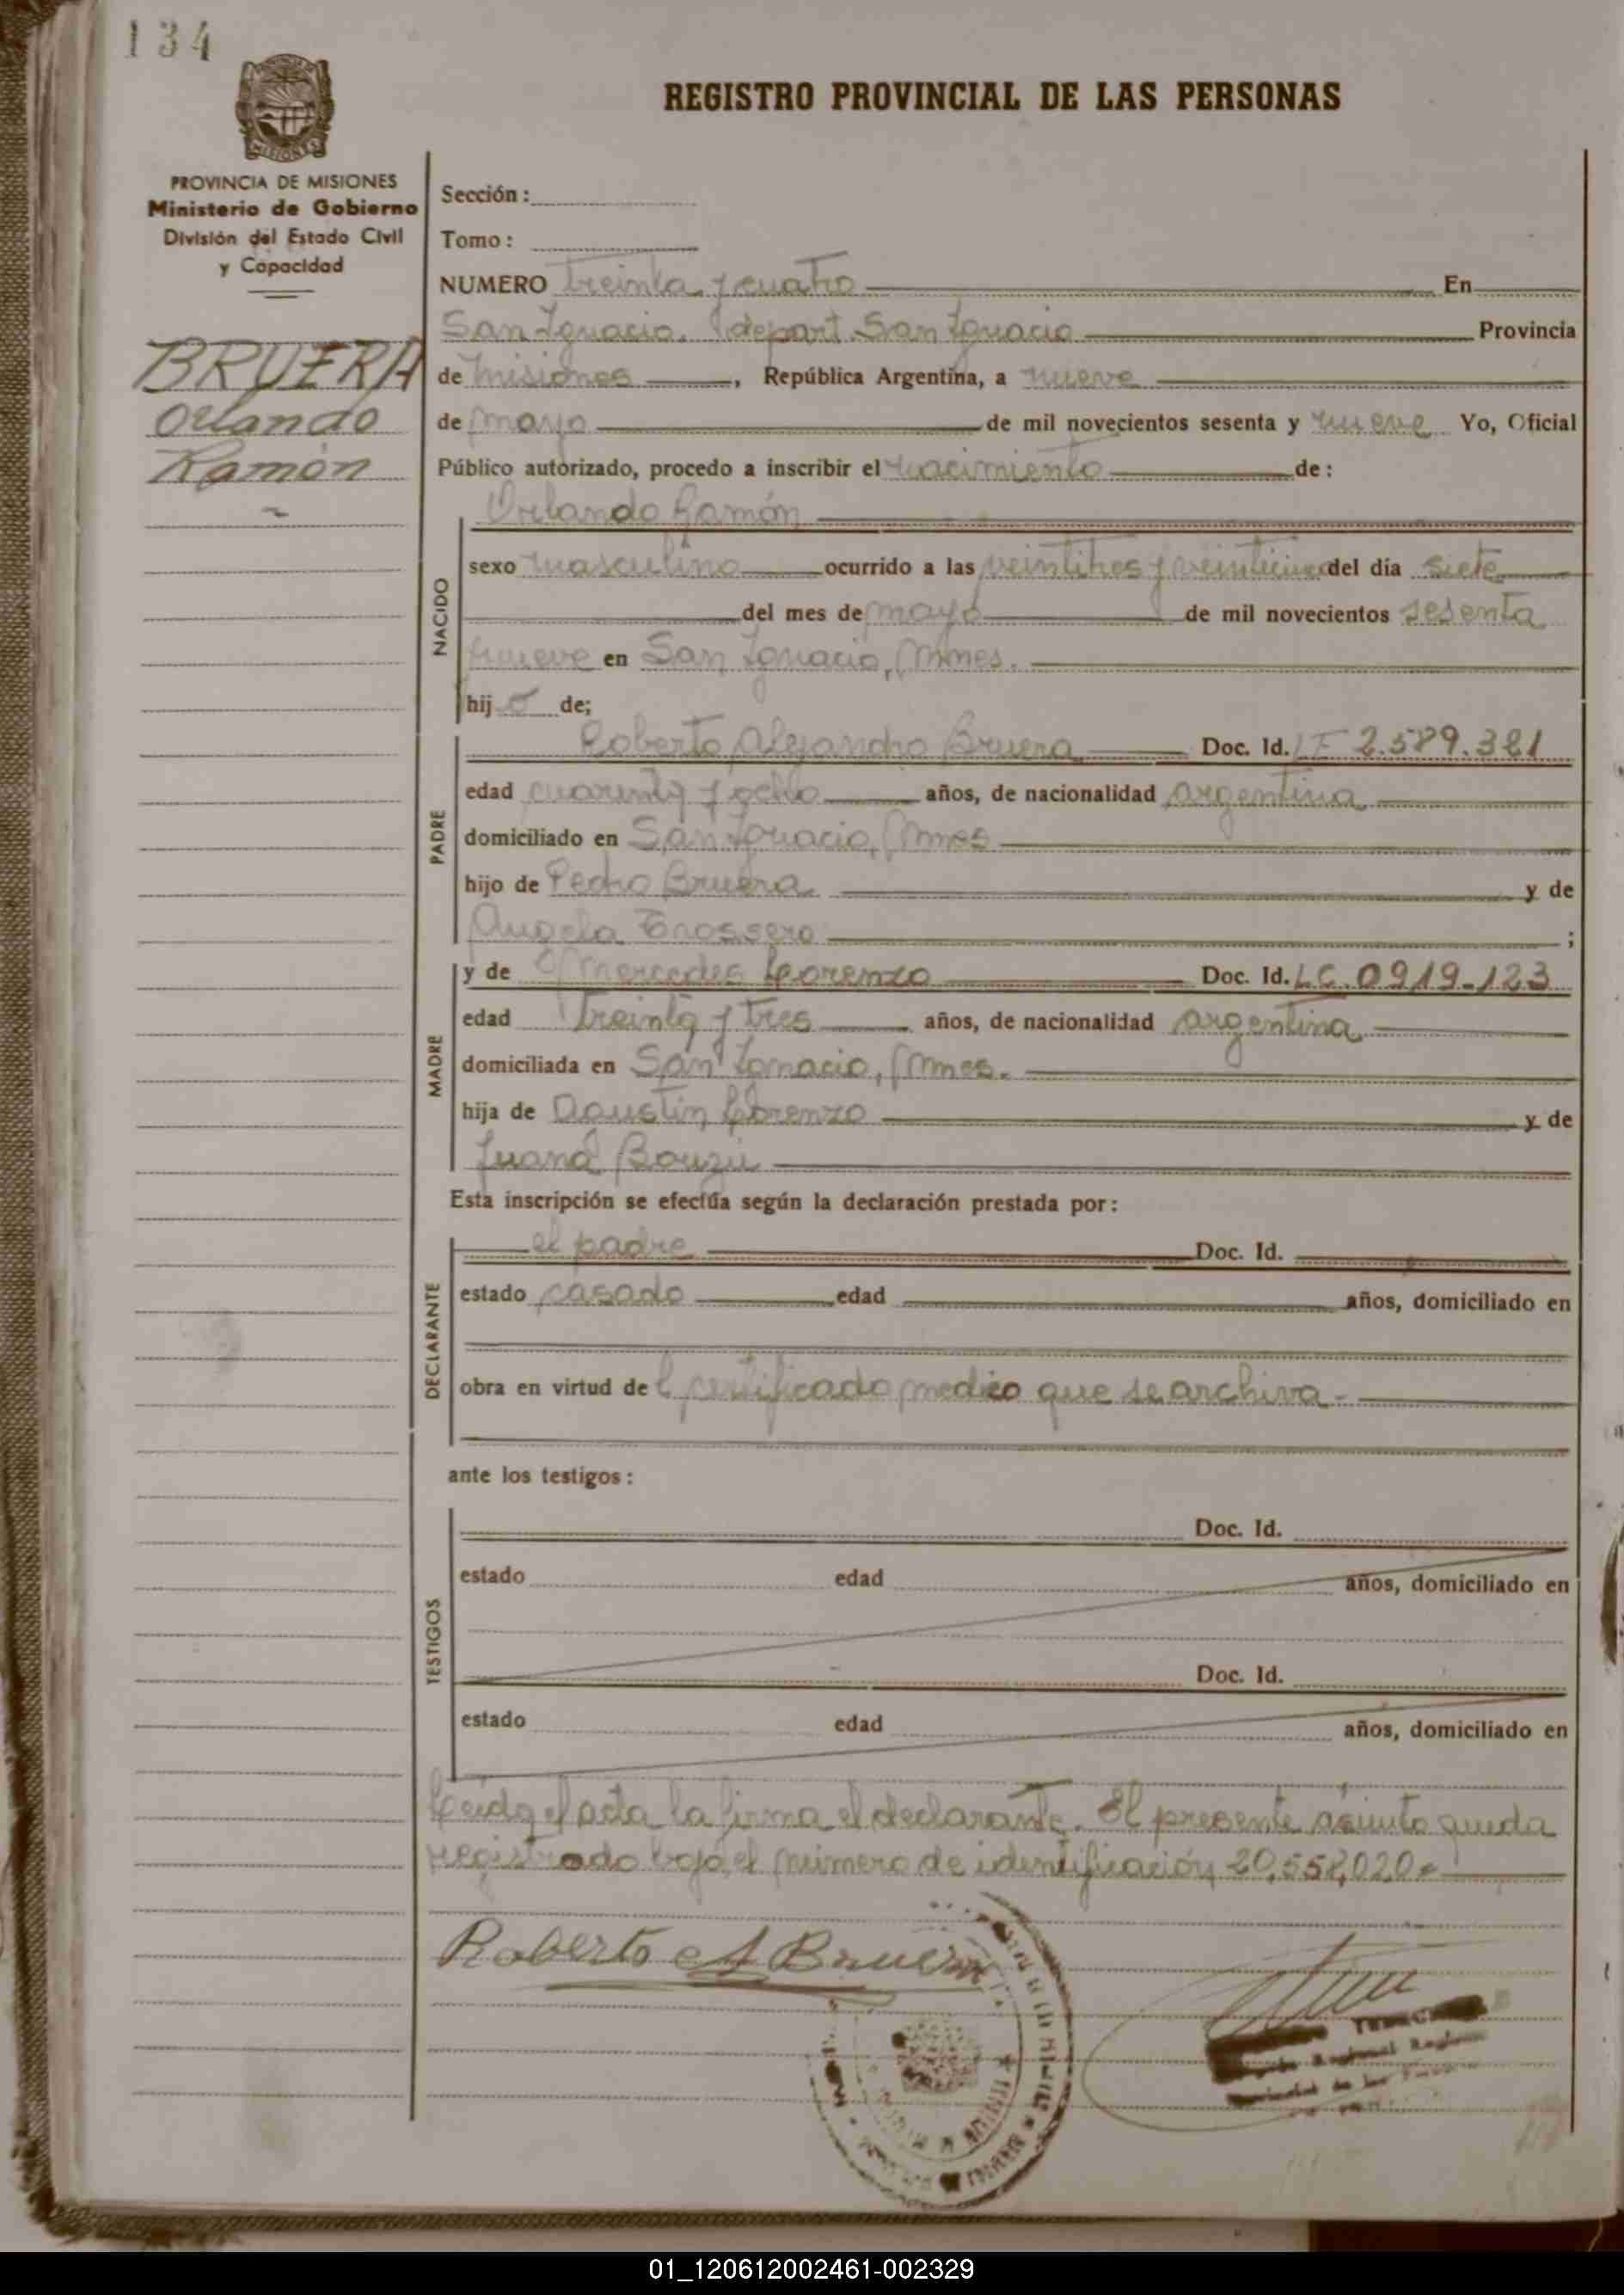 134
REGISTRO PROVINCIAL DE LAS PERSONAS
MISIONES
PROVINCIA DE MISIONES
Ministerio de Gobierno
División del Estado Civil
y Capacidad
BRUERA
Orlando
Ramón
Sección:
Tomo:
NUMERO treinta y cuatro En
San Ignacio, depart. San Ignacio Provincia
de Misiones, República Argentina, a nueve
de mayo de mil novecientos sesenta y nueve Yo, Oficial
Público autorizado, procedo a inscribir el nacimiento de:
NACIDO
Orlando Ramón
sexo masculino ocurrido a las veintitres y del día siete
del mes de mayo de mil novecientos sesenta
y nueve en San Ignacio, Mnes.
hijo de;
PADRE
Roberto Alejandro Bruera Doc. Id. LE 2.589.381
edad cuarenta y ocho años, de nacionalidad argentina
domiciliado en San Ignacio, Mnes
hijo de Pedro Bruera y de
Angela Trossero ;
MADRE
y de Mercedes Lorenzo Doc. Id. LC. 0919-123
edad Treinta y tres años, de nacionalidad argentina
domiciliada en San Ignacio, Mnes.
hija de Agustin Lorenzo y de
Juana
Esta inscripción se efectúa según la declaración prestada por:
DECLARANTE
el padre Doc. Id.
estado casado edad años, domiciliado en
obra en virtud del certificado medico que se archiva.-
ante los testigos:
TESTIGOS
Doc. Id.
estado edad años, domiciliado en
Doc. Id.
estado edad años, domiciliado en
Leida el acta la firma el declarante. El presente asiento queda
registrado bajo el número de identificación 20,558,020.-
Roberto A Bruera
01_120612002461-002329